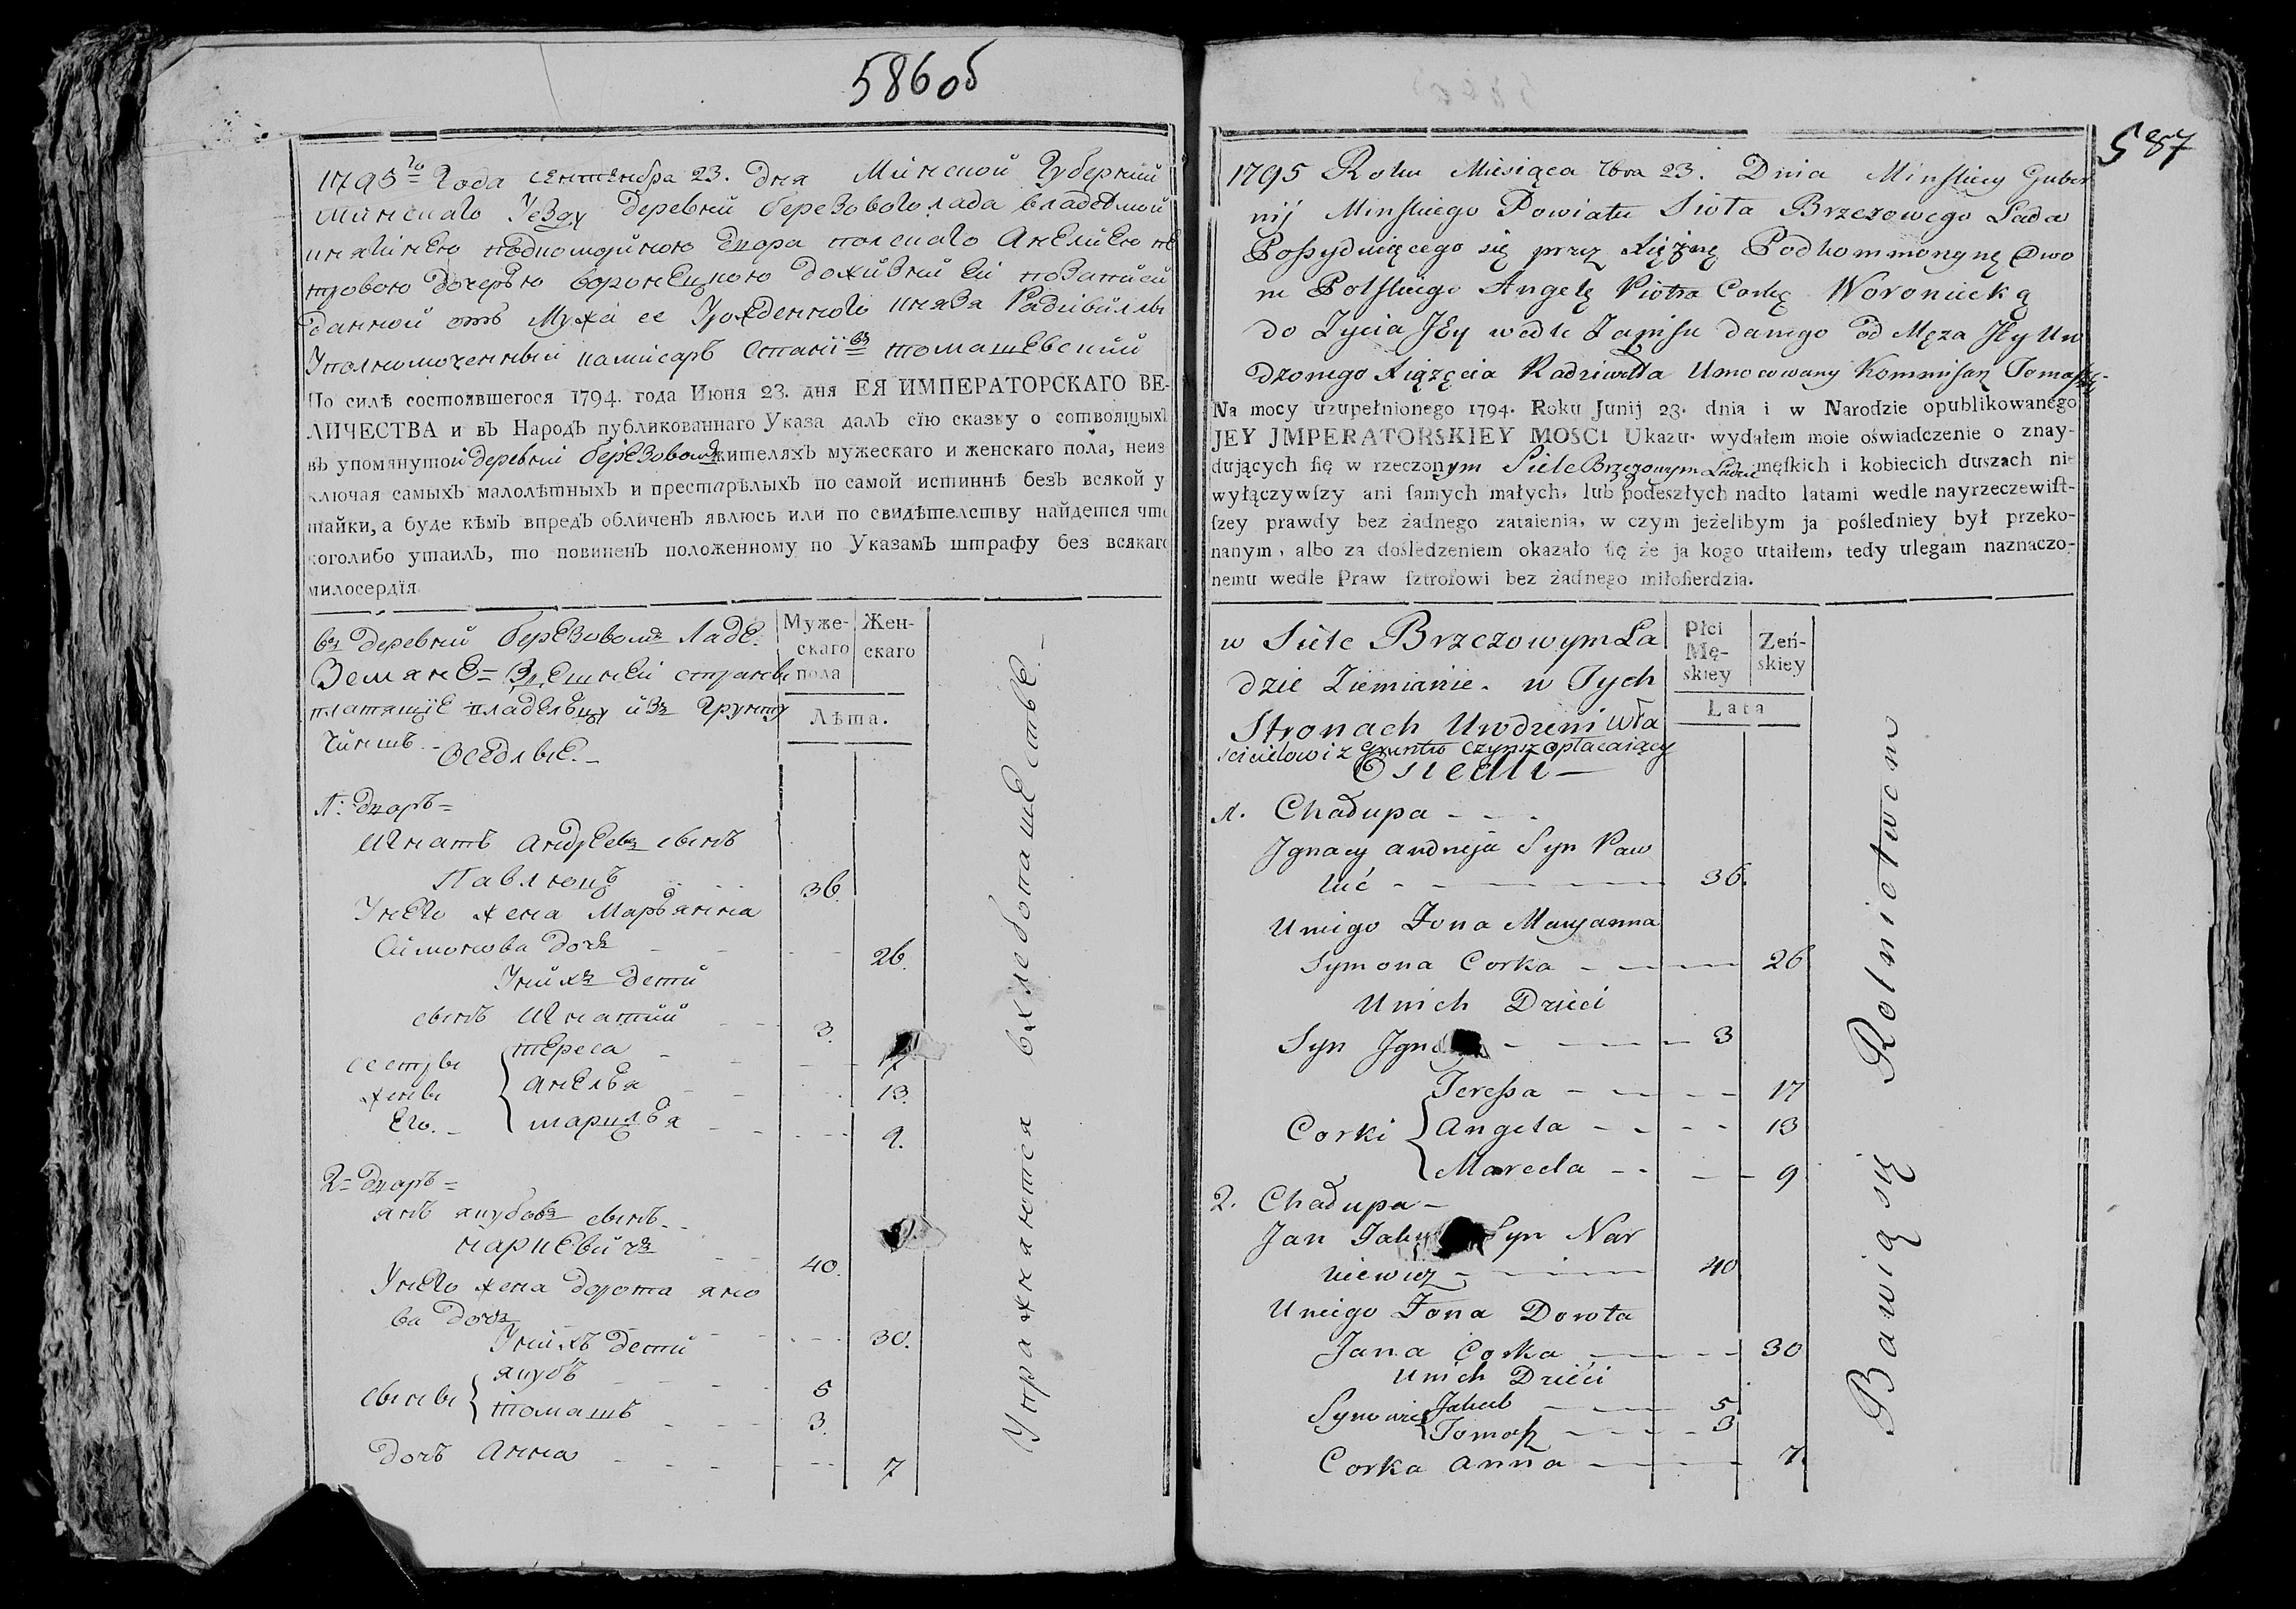 586об
1795го Года сентебра 23. дня Минской Губерний
Минскаго Уезду деревний березового лада владемой
княгинею подкоморйною двора полскаго Анелиею пе
тровою дочерью воронецкою
данной отъ Мужа ее Урожденного князя Радивилы
Уполномоченный камисаръ томашевский
По силѣ состоявшегося 1794. года Июня 23. дня ЕЯ ИМПЕРАТОРСКАГО ВЕ-
ЛИЧЕСТВА и въ Народъ публикованнаго Указа далъ сїю сказку о сотвоящыхъ
въ упомянутой деревни березовомъ жителяхъ мужескаго и женскаго пола, неиз
ключая самыхъ малолѣтныхъ и престарѣлыхъ по самой истиннѣ безъ всякой у
тайки, а буде кѣмъ впредъ обличенъ явлюсь или по свидѣтелству найдется что
коголибо утаилъ, то повиненъ положенному по Указамъ штрафу без всякаго
милосердїя
въ деревний березовомъ Ладе.
Земяне= Здешней страны
платящие владельцу изъ грунту
чиншъ.
Оседлые.
Муже-
скаго
пола
Жен-
скаго
Лѣта.
1: Дворъ=
Игнатъ андреевъ сынъ
Павлюць 36.
Унего жена Марьянна
Симонова дочь 26.
Унихъ дети
сынъ Игнатий 3.
сестры
жены
Его.
тереса 17
анелья 13.
марцелья 9.
2= Дворъ=
янъ якубовъ сынъ
наркевичъ 40.
Унего жена дорота яно
ва дочь 30.
Унихъ дети
сыны
якубъ 5
томашъ 3.
дочь анна 7
Упражняются в хлебопашестве.
587
1795 Roku Miesiąca 7bra 23. Dnia Minskiey Guber
nij Minskiego Powiatu Sioła Brzezowego Lada
Possyduiącego się przez Xiężnę Podkommorzynę Dwo
ru Polskiego Angelę Piotra Corkę Woroniecką
do Zycia JEy wedle Zapisu danego od Męza JEy Uro
dzonego Xiążęcia Radziwiłła Umocowany Kommisarz Tomasze-
Na mocy uzupełnionego 1794. Roku Junij 23. dnia i w Narodzie opublikowanego
JEY JMPERATORSKIEY MOSCI Ukazu. wydałem moie oświadczenie o znay-
dujących ſię w rzeczonym Siele Brzezowym Ladzie męſkich i kobiecich duszach nie
wyłączywſzy ani ſamych małych, lub podeszłych nadto latami wedle nayrzeczewiſt-
ſzey prawdy bez żadnego zataienia, w czym jeżelibym ja pośledniey był przeko-
nanym, albo za dośledzeniem okazało ſię że ja kogo utaiłem, tedy ulegam naznaczo-
nemu wedle Praw ſztrofowi bez żadnego miłoſierdzia.
w Siele Brzezowym La
dzie Ziemianie. w Tych
Stronach Urodzeni wła
scicielowi z gruntu czynsz opłacaiący
Osiedli
Płci
Mę-
skiey
Zeń-
skiey
Lata
1. Chałupa
Jgnacy andrzeja Syn Paw
luć 36.
Uniego Zona Maryanna
Symona Corka 26
Unich Dzieci
Syn Jgna 3
Corki
Teressa 17
Angela 13
Marcela 9
2. Chałupa
Jan Jaku Syn Nar
kiewicz 40
Uniego Zona Dorota
Jana Corka 30
Unich Dzieci
Synowie
Jakub 5
Tomasz 3
Corka anna 7.
Bawią się Rolnictwem